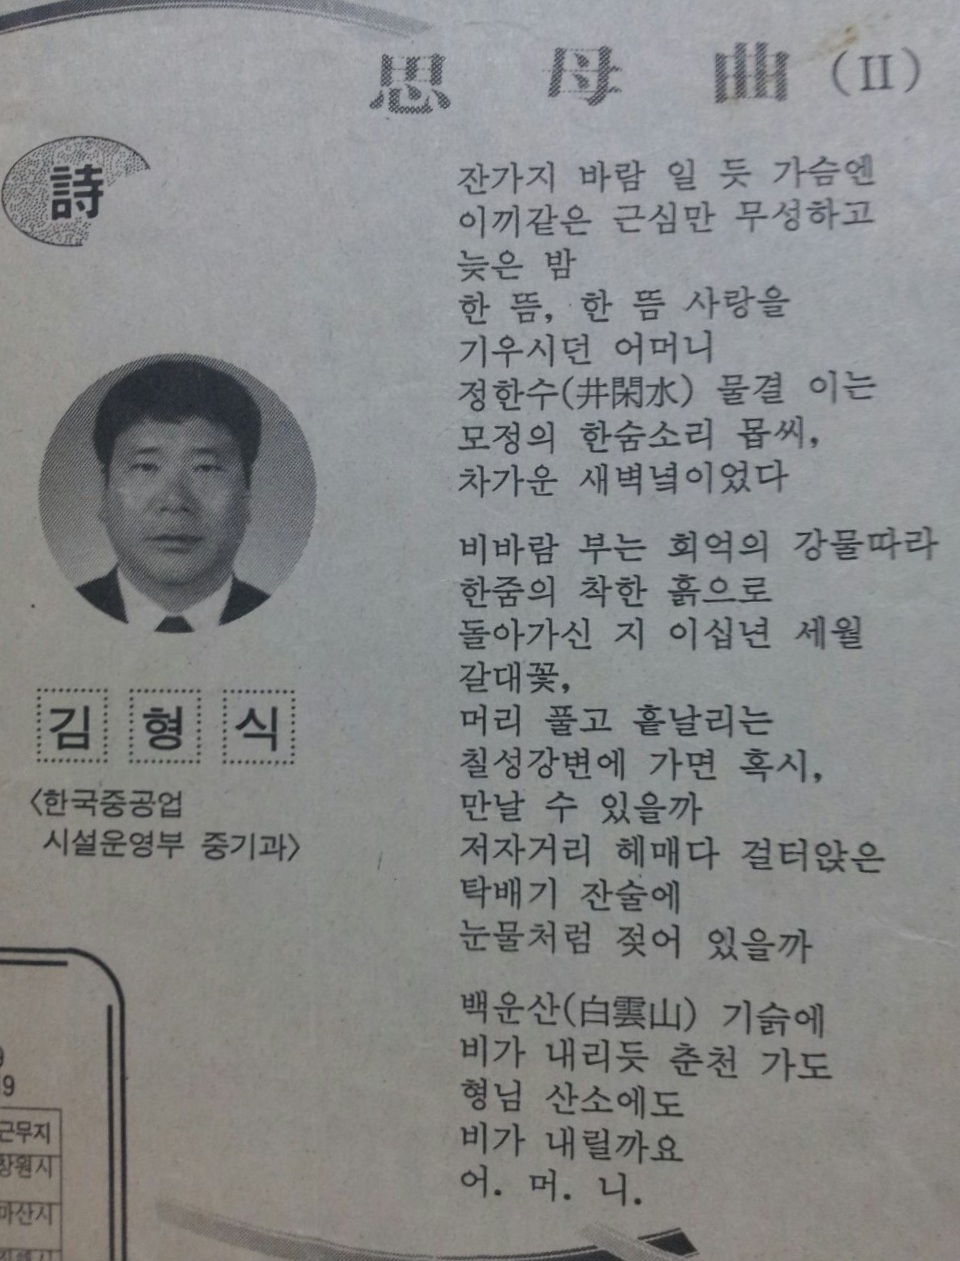 思 母 曲 (II)
詩
잔가지 바람 일 듯 가슴엔
이끼같은 근심만 무성하고
늦은 밤
한 뜸, 한 뜸 사랑을
기우시던 어머니
정한수(井閑水) 물결 이는
모정의 한숨소리 몹씨,
차가운 새벽녘이었다
비바람 부는 회억의 강물따라
한줌의 착한 흙으로
돌아가신 지 이십년 세월
갈대꽃,
머리 풀고 흩날리는
칠성강변에 가면 혹시,
만날 수 있을까
저자거리 헤매다 걸터앉은
탁배기 잔술에
눈물처럼 젖어 있을까
백운산(白雲山) 기슭에
비가 내리듯 춘천 가도
형님 산소에도
비가 내릴까요
어. 머. 니.
김 형 식
<한국중공업
시설운영부 중기과>
9
근무지
창원시
마산시